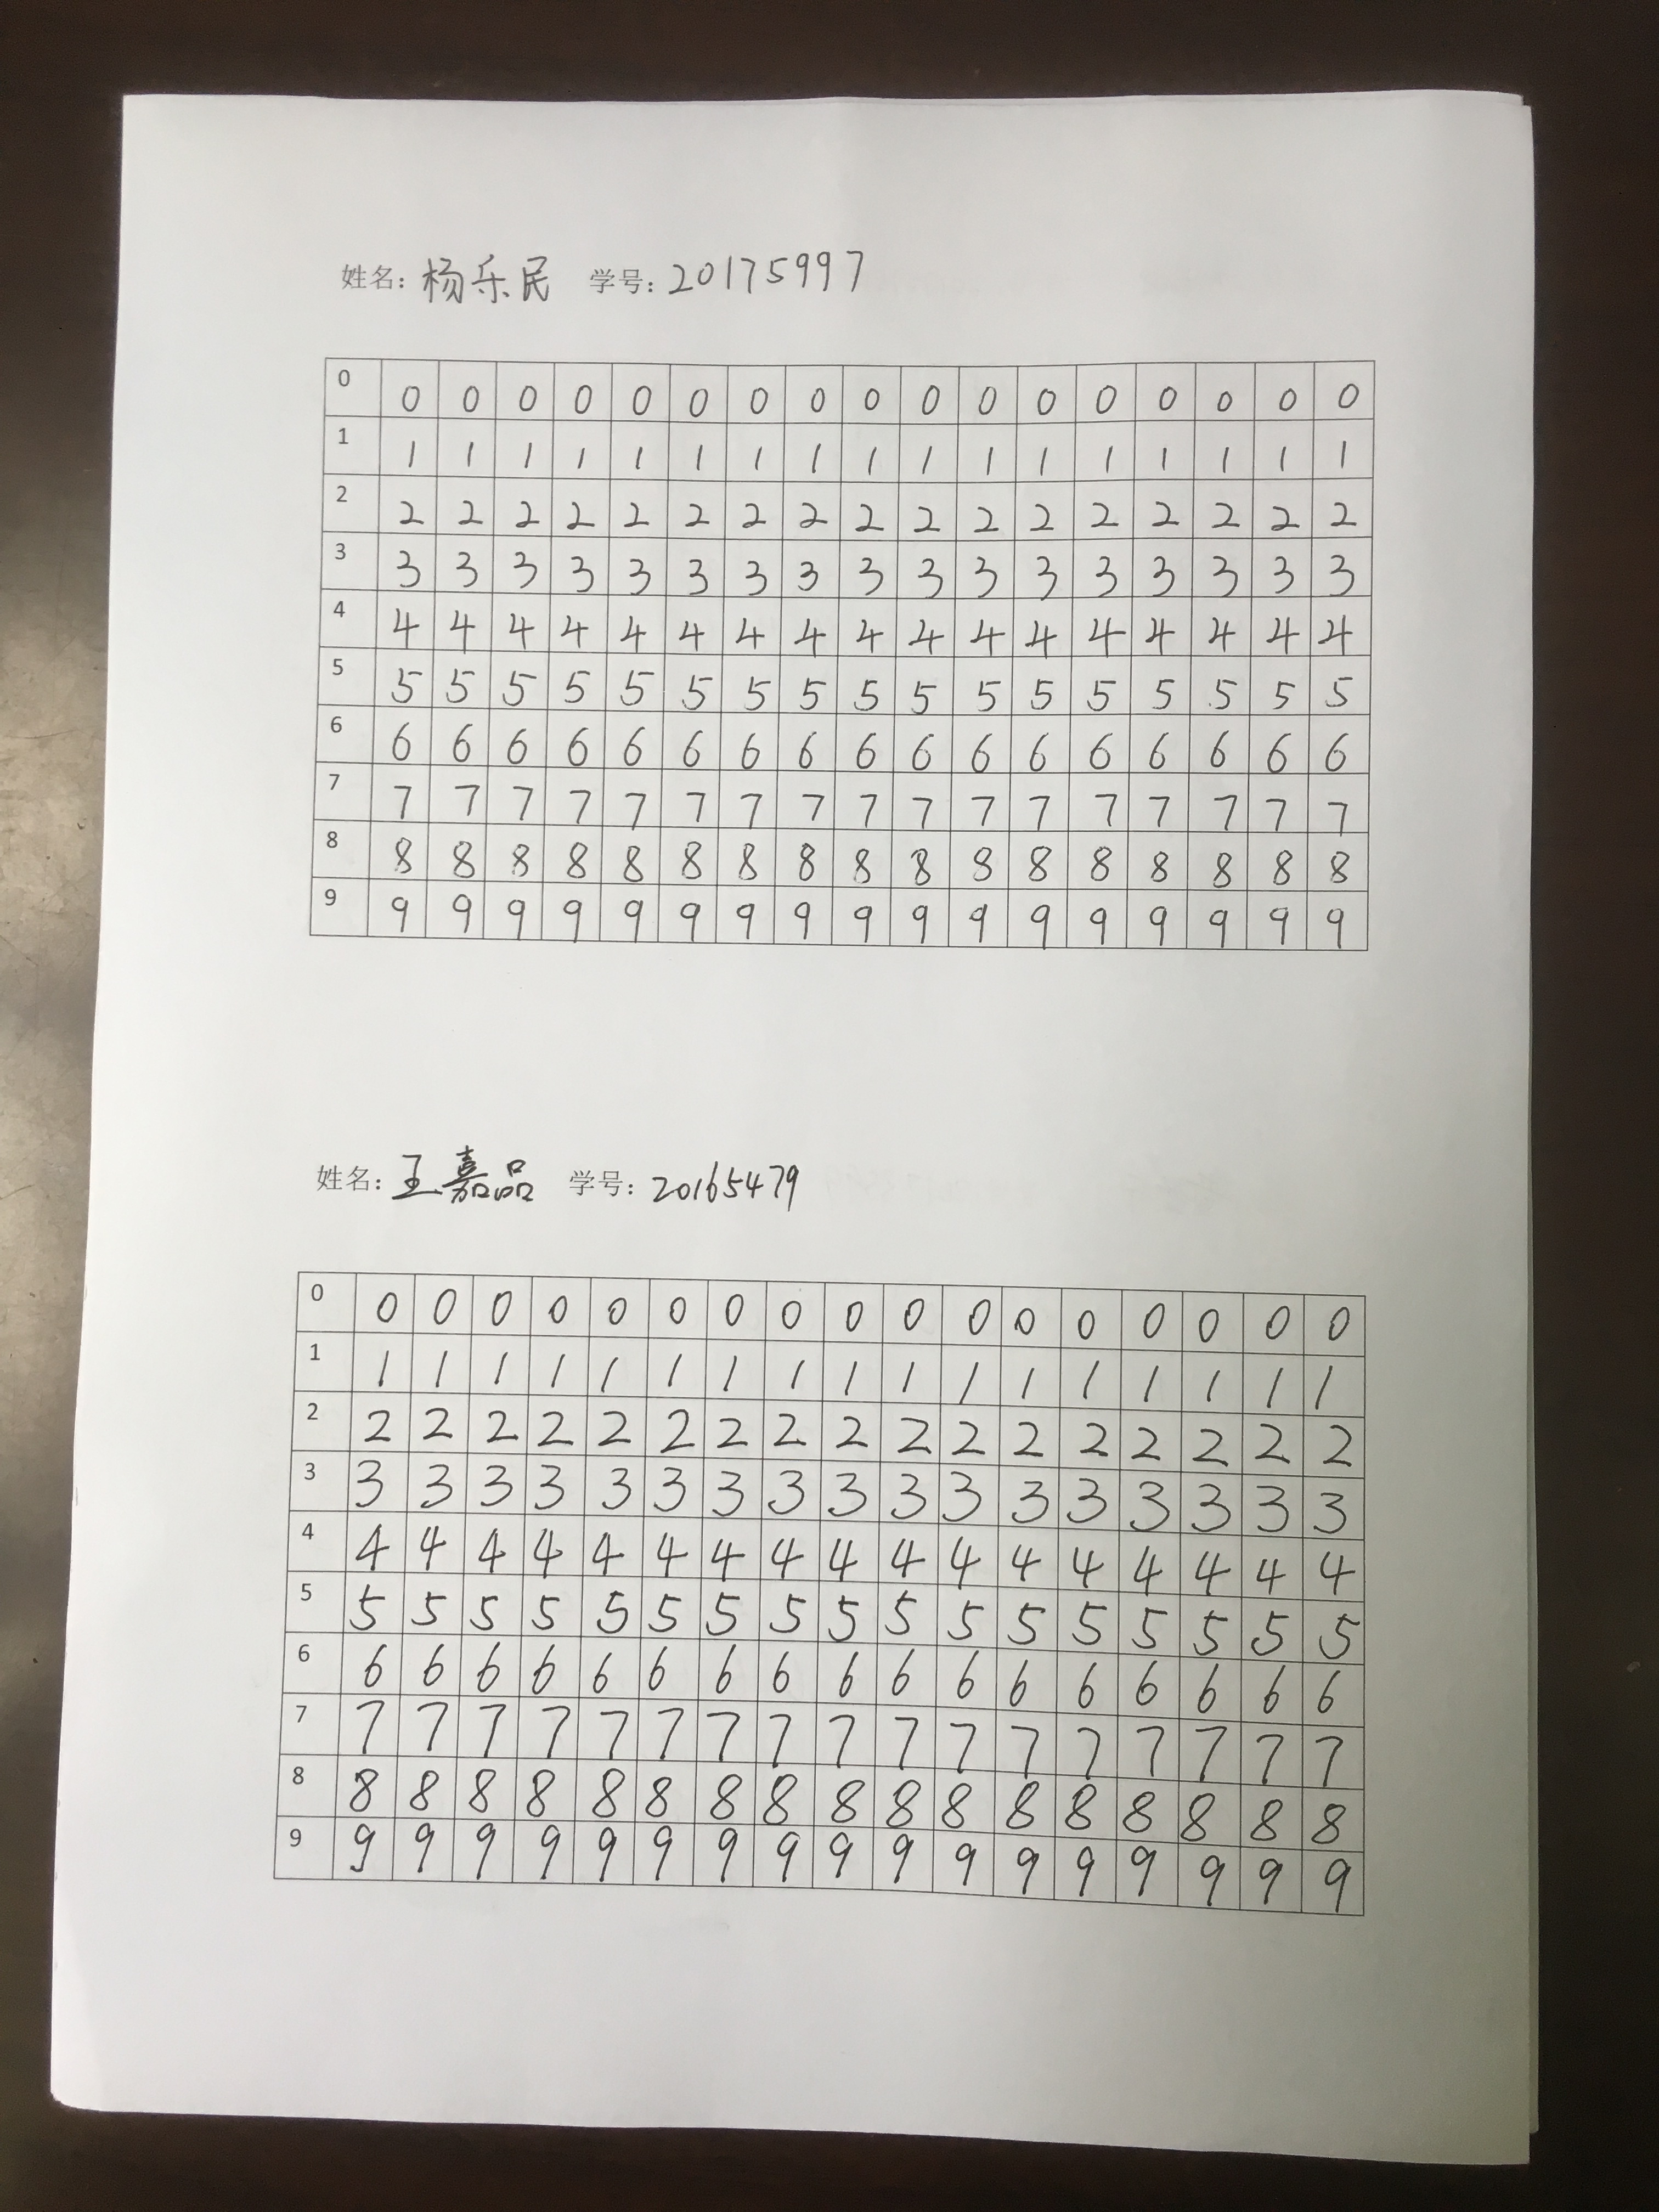 姓名：杨乐民 学号：20175997
0 0 0 0 0 0 0 0 0 0 0 0 0 0 0 0 0 0
1 1 1 1 1 1 1 1 1 1 1 1 1 1 1 1 1 1
2 2 2 2 2 2 2 2 2 2 2 2 2 2 2 2 2 2
3 3 3 3 3 3 3 3 3 3 3 3 3 3 3 3 3 3
4 4 4 4 4 4 4 4 4 4 4 4 4 4 4 4 4 4
5 5 5 5 5 5 5 5 5 5 5 5 5 5 5 5 5 5
6 6 6 6 6 6 6 6 6 6 6 6 6 6 6 6 6 6
7 7 7 7 7 7 7 7 7 7 7 7 7 7 7 7 7 7
8 8 8 8 8 8 8 8 8 8 8 8 8 8 8 8 8 8
9 9 9 9 9 9 9 9 9 9 9 9 9 9 9 9 9 9
姓名：王嘉品 学号：20165479
0 0 0 0 0 0 0 0 0 0 0 0 0 0 0 0 0 0
1 1 1 1 1 1 1 1 1 1 1 1 1 1 1 1 1 1
2 2 2 2 2 2 2 2 2 2 2 2 2 2 2 2 2 2
3 3 3 3 3 3 3 3 3 3 3 3 3 3 3 3 3 3
4 4 4 4 4 4 4 4 4 4 4 4 4 4 4 4 4 4
5 5 5 5 5 5 5 5 5 5 5 5 5 5 5 5 5 5
6 6 6 6 6 6 6 6 6 6 6 6 6 6 6 6 6 6
7 7 7 7 7 7 7 7 7 7 7 7 7 7 7 7 7 7
8 8 8 8 8 8 8 8 8 8 8 8 8 8 8 8 8 8
9 9 9 9 9 9 9 9 9 9 9 9 9 9 9 9 9 9